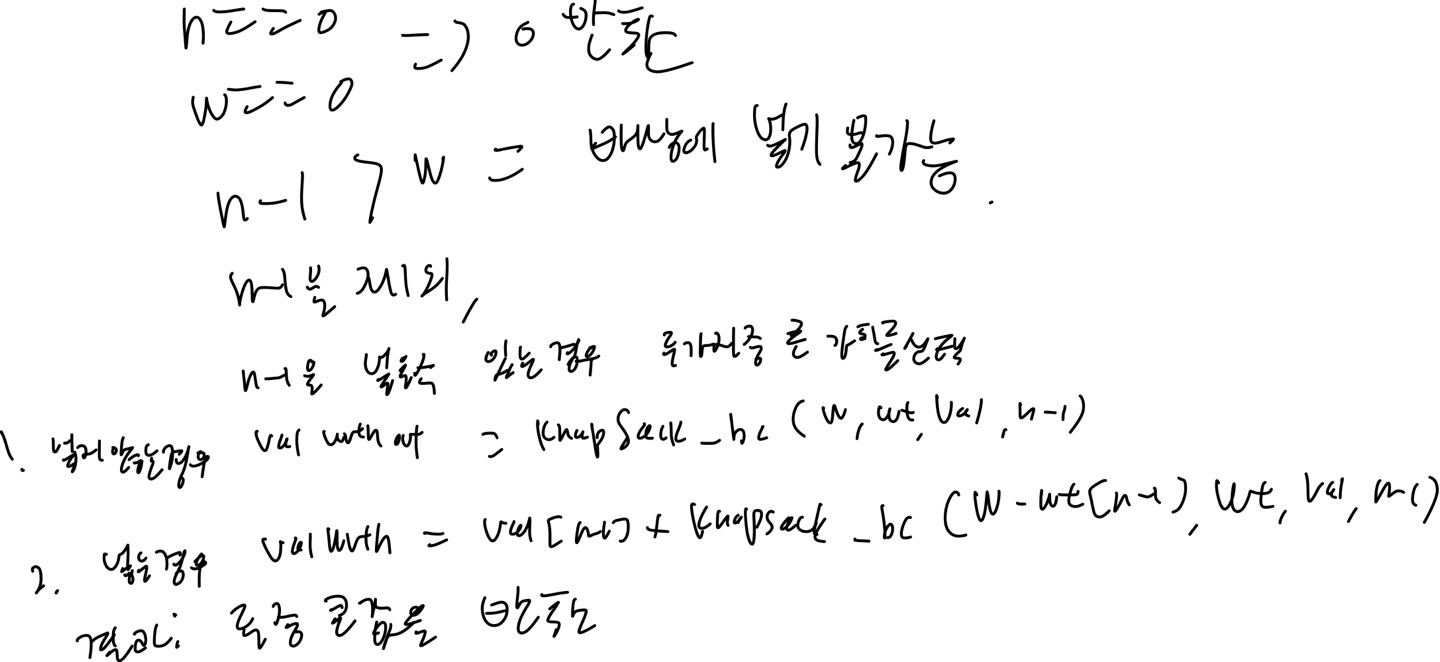 n==0 => 0 반환
w==0
n-1 > W = 배낭에 넣기 불가능.
n-1을 제외,
n-1을 넣을수 있는경우 두가지중 큰 가치를선택
1. 넣지않는경우 val without = knapSack_bc (W, wt, val, n-1)
2. 넣는경우 val with = val[n-1] + knapsack_bc (W-wt[n-1], wt, val, n-1)
결과: 둘중 큰값을 반환